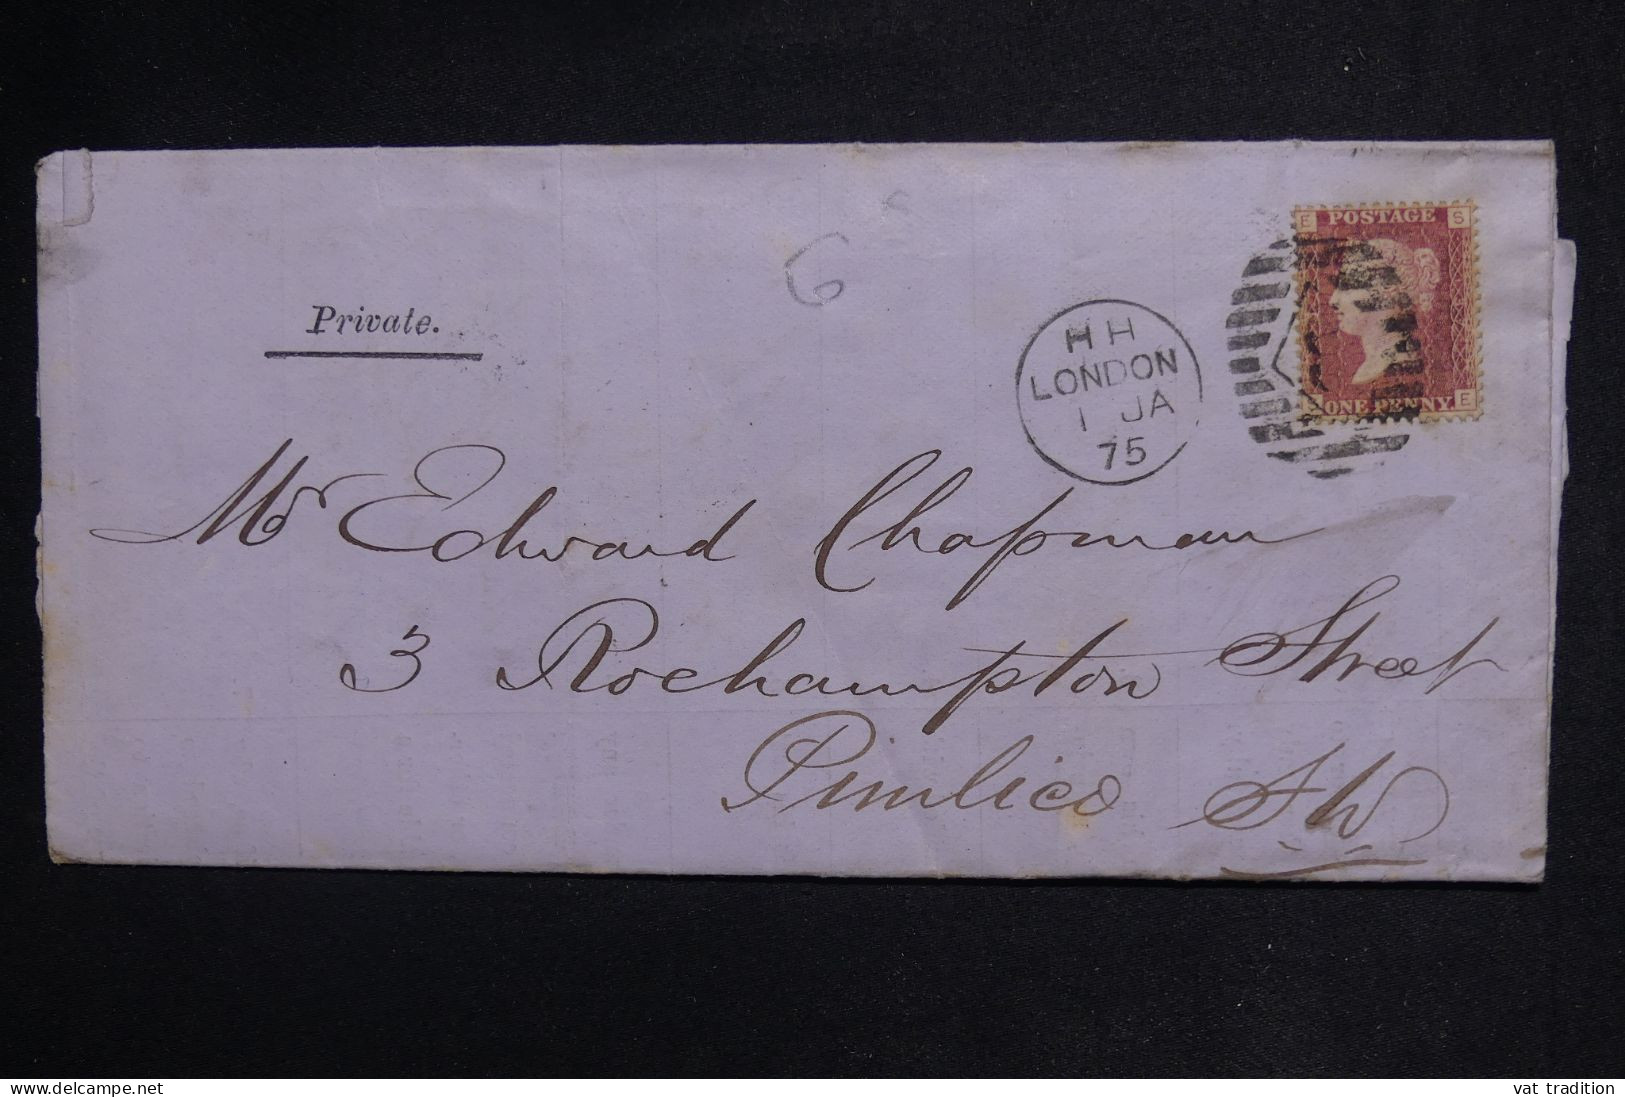 E POSTAGE S
ONE PENNY E
6
Private.
HH
LONDON
1 JA
75
Mr Edward Chapman
3 Roehampton Street
Pimlico S W
www.delcampe.net
vat tradition